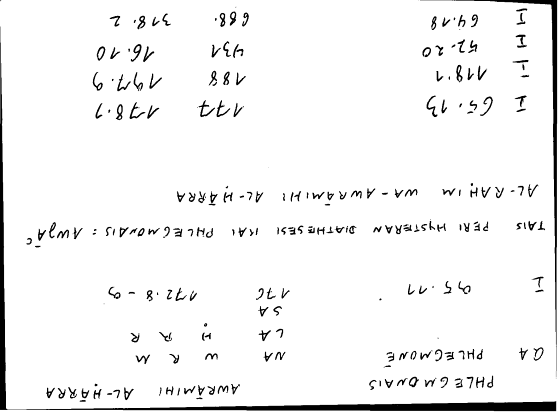 PHLEGMONAIS AWRĀMIHI AL-ḤĀRRA
QA PHLEGMONĒ NA W R M
LA Ḥ R R
SA
I 95.11 176 172.8-9
TAIS PERI HYSTERAN DIATHESESI KAI PHLEGMONAIS : AWǦĀᶜ
AL-RAḤIM WA-AWRĀMIHI AL-ḤĀRRA
I 65.13 177 178.7
I 118.1 188 197.9
I 52.20 431 16.10
I 64.18 688. 318.2